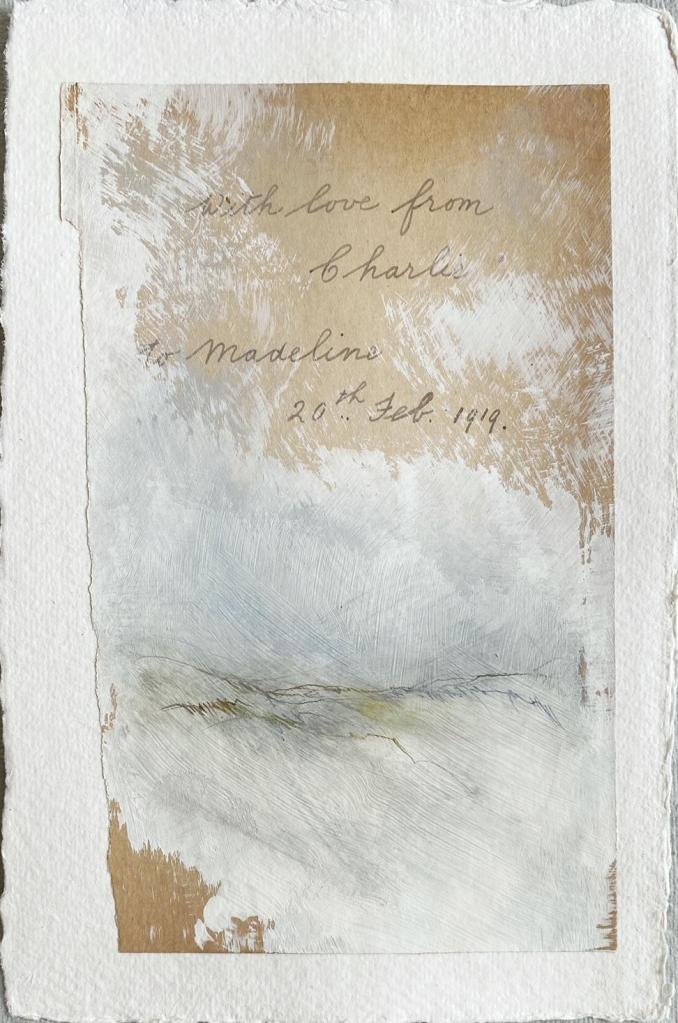 with love from
Charlie
to Madeline
20th. Feb. 1919.